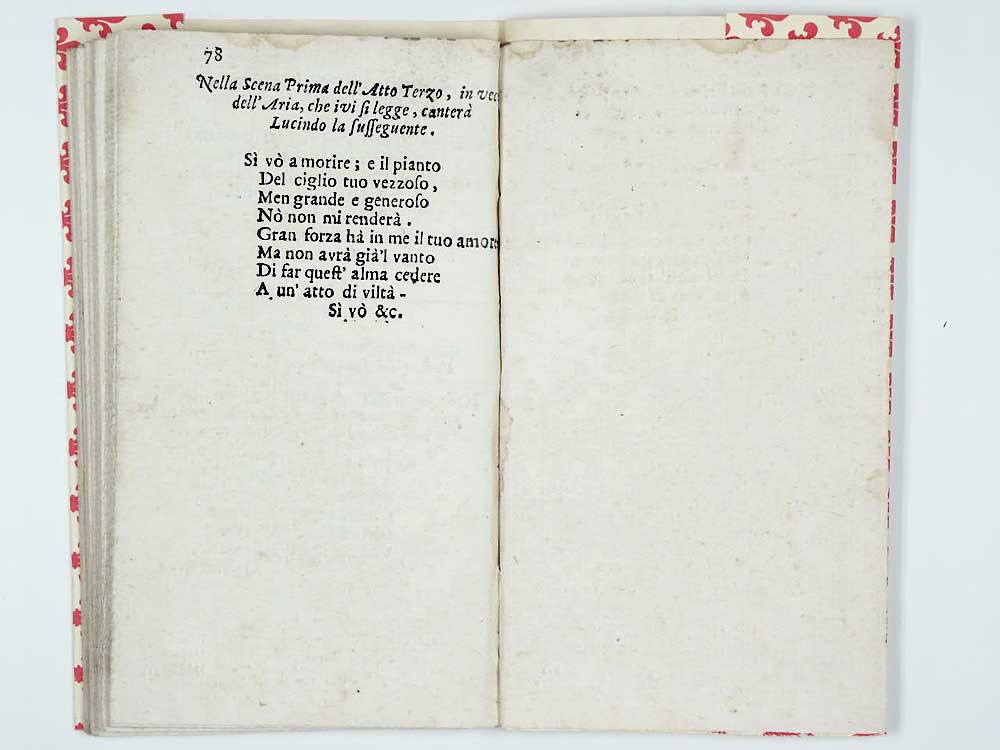 78
Nella Scena Prima dell' Atto Terzo, in vec
dell' Aria, che ivi ſi legge, canterà
Lucindo la ſuſſeguente.
Sì vò a morire; e il pianto
Del ciglio tuo vezzoſo,
Men grande e generoſo
Nò non mi renderà.
Gran forza hà in me il tuo amore
Ma non avrà già'l vanto
Di far queſt' alma cedere
A un' atto di viltà -
Sì vò &c.